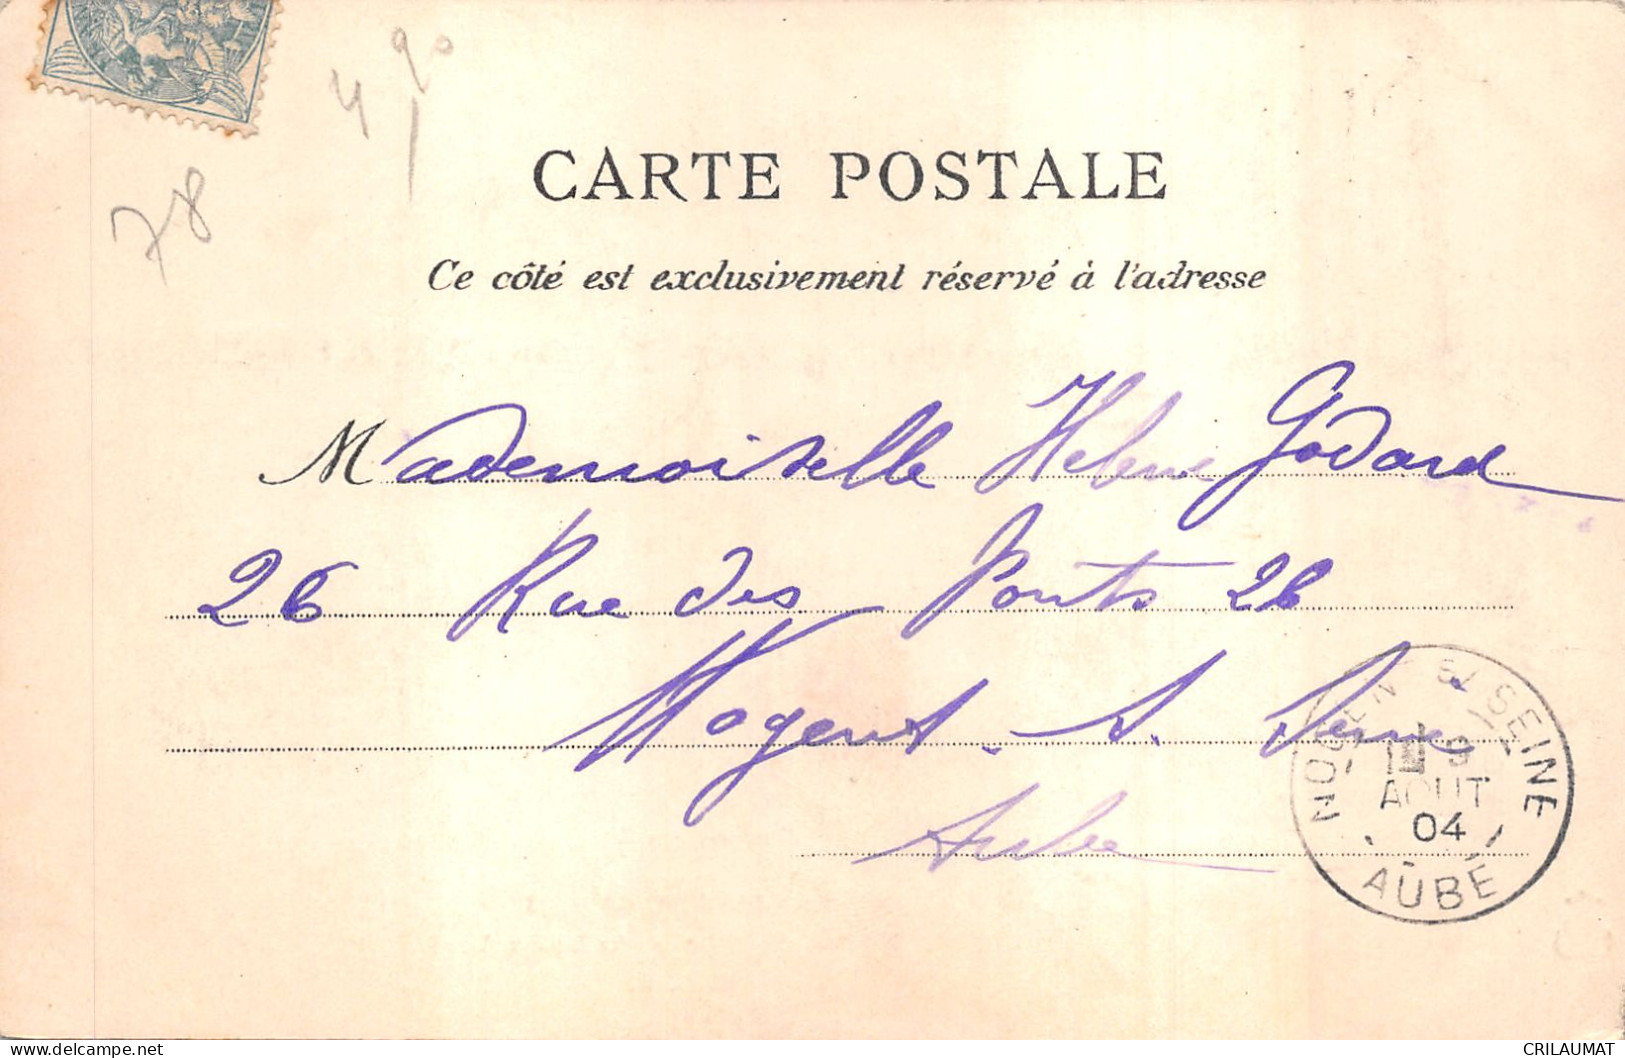 4 90
78
CARTE POSTALE
Ce côté est exclusivement réservé à l'adresse
Mademoiselle Helene Godard
26 Rue des Ponts 26
Nogent. s. Seine
Aube
NOGENT S/ SEINE
AOUT
04
AUBE
CRILAUMAT